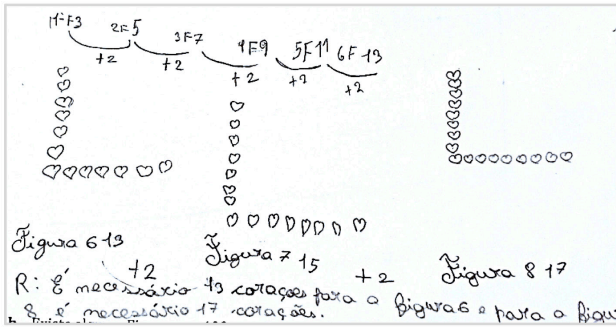 1ªF3 2F5 3F7 4F9 5F11 6F13
+2 +2 +2 +2 +2
Figura 6 13 Figura 7 15 Figura 8 17
+2 +2
R: É necessário 13 corações para a figura 6 e para a figu
8 é necessário 17 corações.